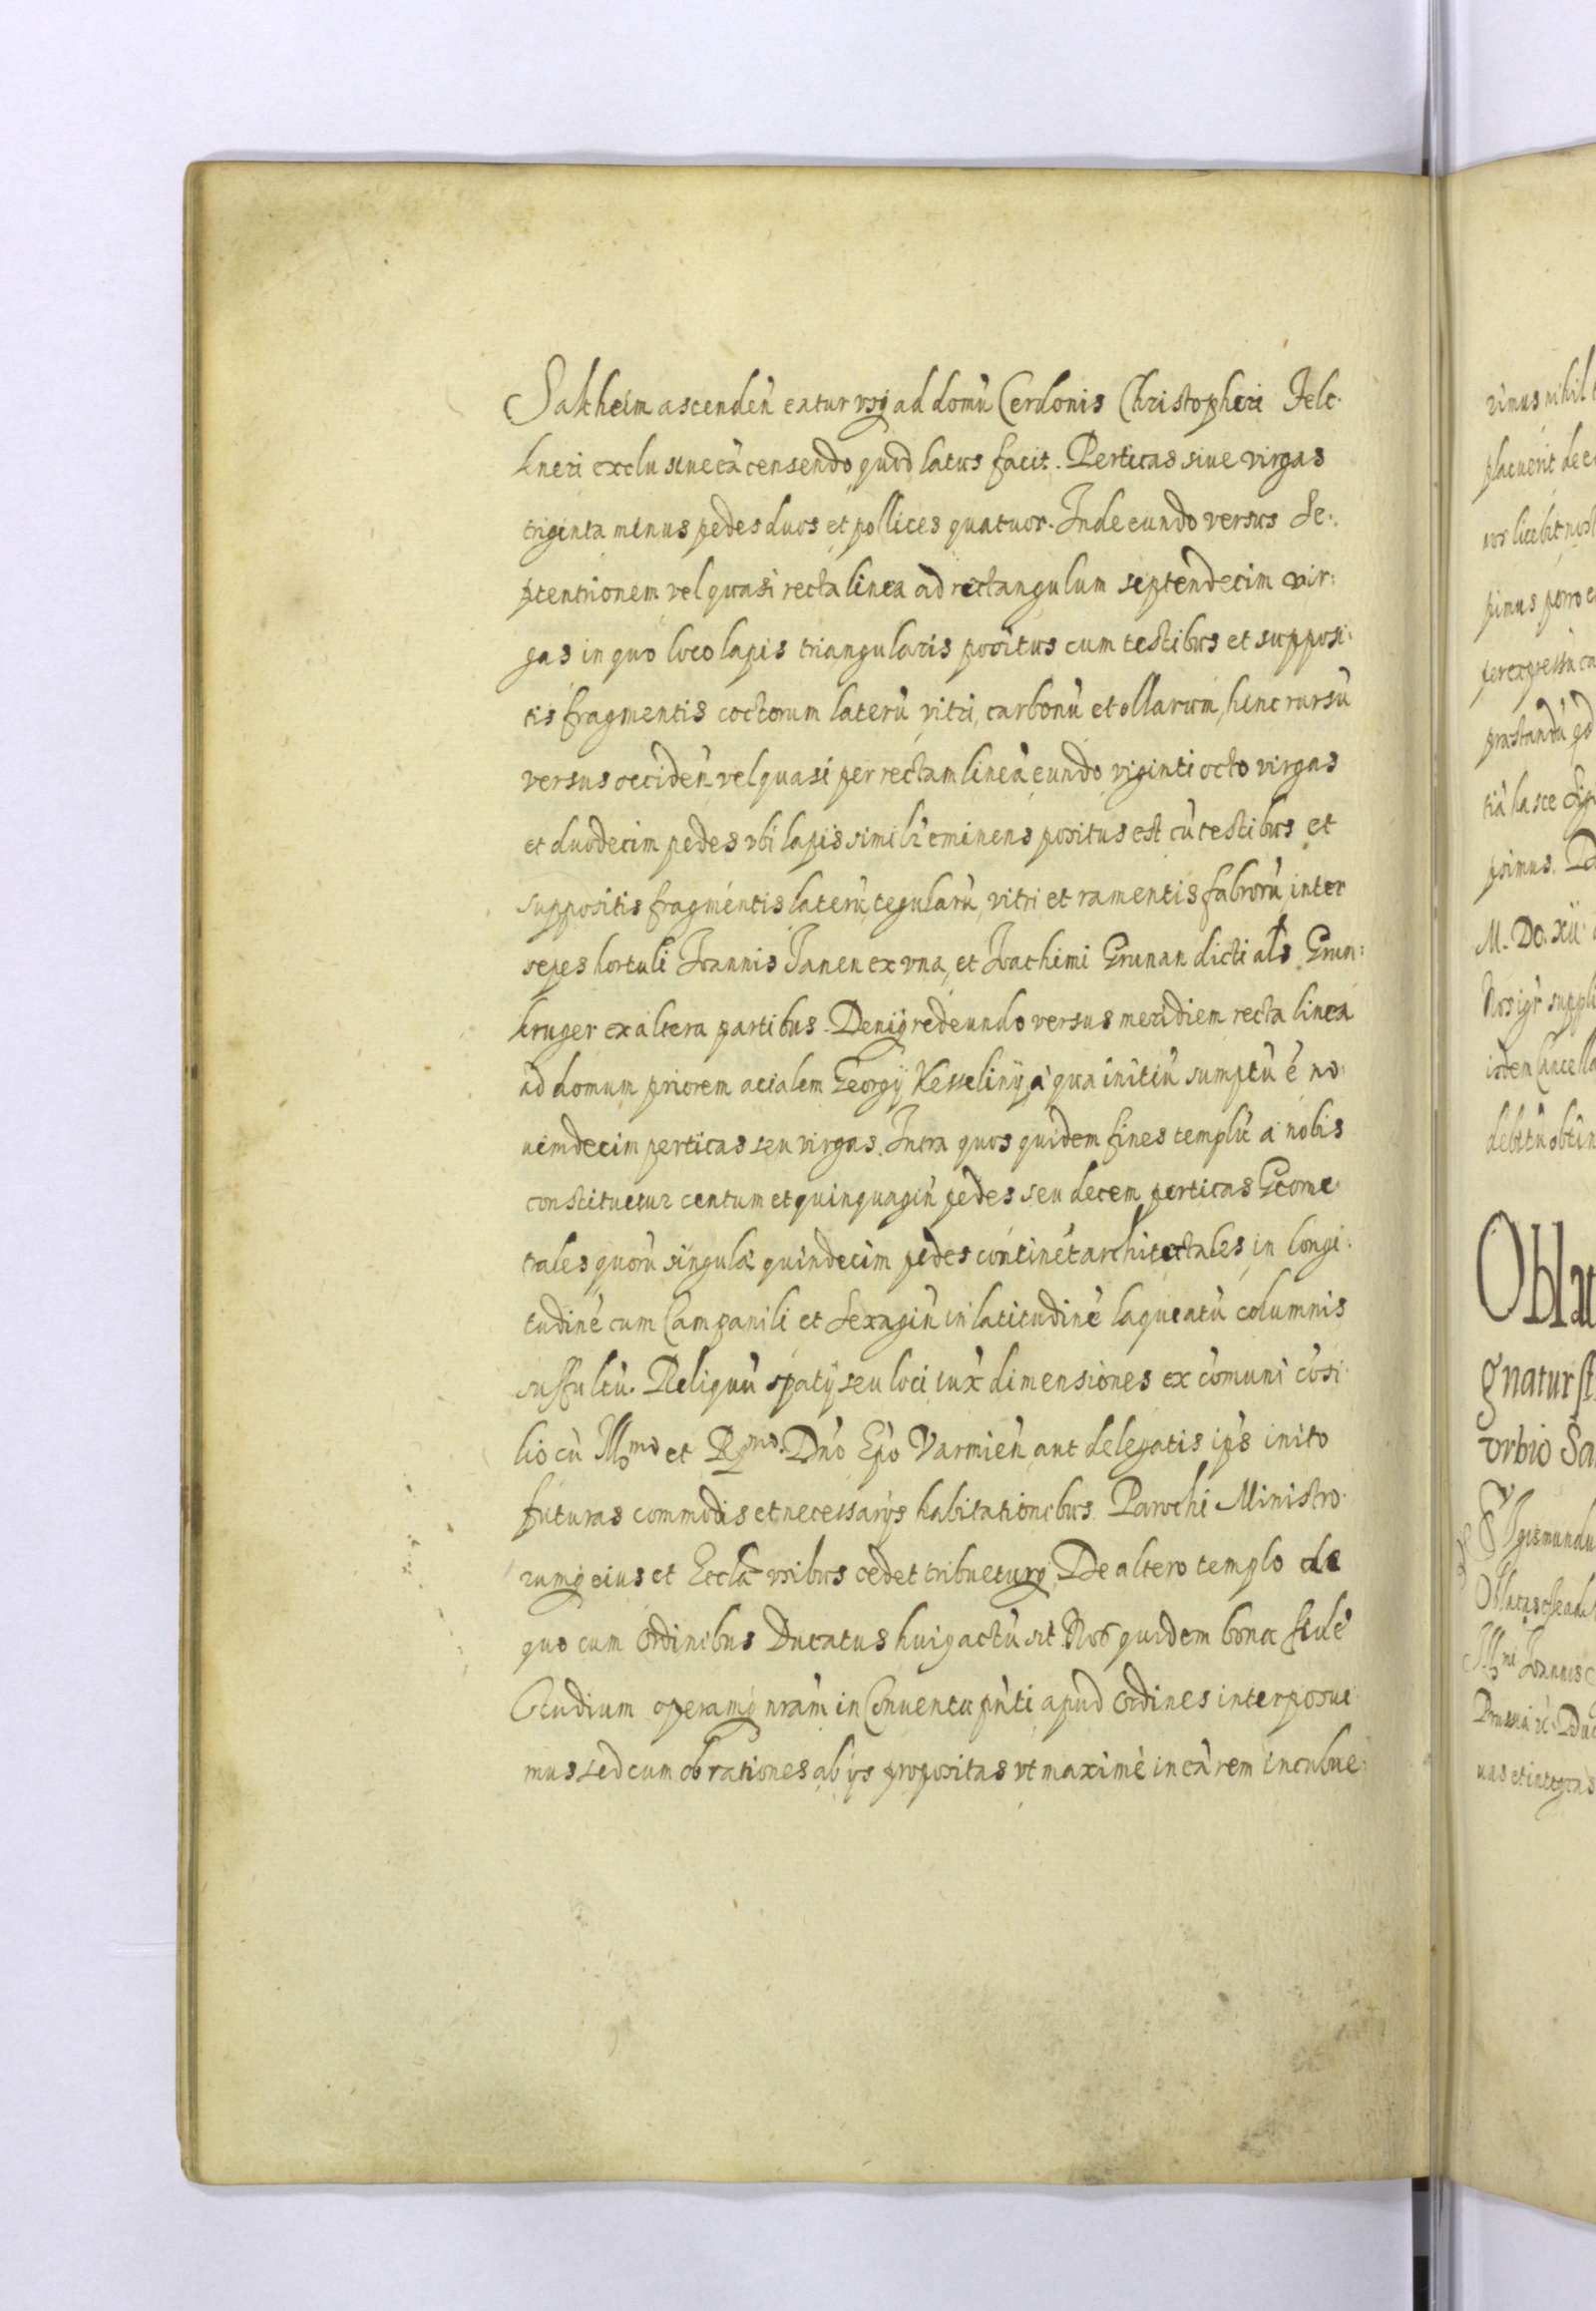 Sakheim ascendeń eatur vsq̨ ad domù Cerdonis Christopheri Felc
kneri exclusiue eà censendo quod latus facit. Perticas siue virgas
triginta minus pedes duos et pollices quatuor. Inde eundo versus Se:
ptentrionem vel quasi recta linea ad rectangulum septendecim vir:
gas in quo loco lapis triangularis positus cum testibus et supposi:
tis fragmentis coctorum laterù, vitri, carbonù et ollarum, hinc rursù
versus occideń vel quasi per rectam lineà eundo viginti octo virgas
et duodecim pedes vbi lapis similr̀ eminens positus est cù testibus et
suppositis fragmentis laterù, tegularù, vitri et ramentis fabrorù, inter
sepes hortuli Ioannis Ianen ex vna, et Ioachimi Grunan dicti als Grun:
kruger ex altera partibus. Deniq̨ redeundo versus meridiem recta linea
ad domum priorem acialem Georgij Kesselinij, à qua initiù sumptù è no:
uemdecim perticas seu virgas. Intra quos quidem fines templù à nobis
constituetur centum et quinquagiń pedes seu decem perticas Geome:
trales quorù singulæ quindecim pedes continèt architectales, in longi:
tudinè cum Campanili et Sexagiń in latitudinè laqueatù columnis
suffultù. Reliquù spatij seu loci iux̀ dimensiones ex còmuni còsi
lio cù Illmo et Rmo Dńo Epò Varmień aut delegatis ip̀s inito
futuras commodis et necessarijs habitationibus Parochi Ministro
rumq̨ eius et Ecclæ̀ vsibus cedet tribueturq̨. De altero templo de
quo cum Ordinibus Ducatus huiq̨ actù sit. Nos quidem bonæ fidè
Studium operamq̨ nràm in Conuentu pńti apud Ordines interposui
mus sed cum ob rationes ab ijs propositas vt maximè in eà rem incubue:
rimus nihil
placuerit de
uos licebit
pimus porro
per expressù
præstandù qd
tià hasce
psimus.
M. Dc. xii
Nos igr̀ suppli
isdem Cancella
debitù obtin
Oblat
gnatur
vrbio Sa
Sigismundu
Oblatas esse
Illmi Ioannis
Prussiæ
uas et integras